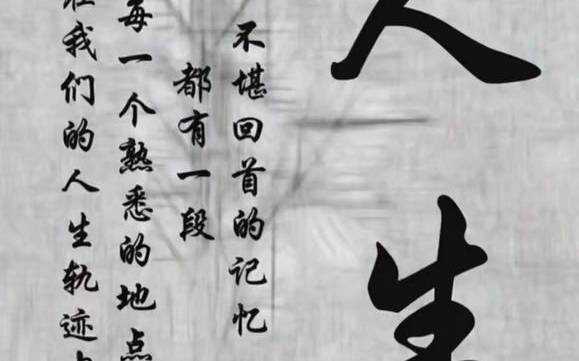 人生
我们的人生轨迹
每一个熟悉的地点
都有一段
不堪回首的记忆